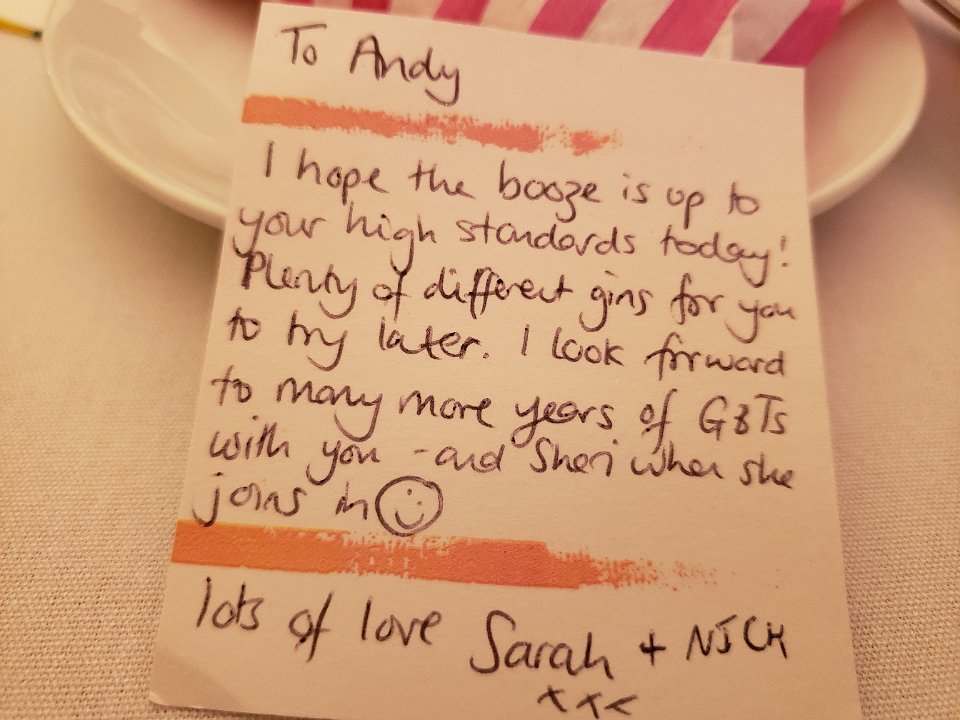 To Andy
I hope the booze is up to
your high standards today!
Plenty of different gins for you
to try later. I look forward
to many more years of G&Ts
with you - and Sheri when she
joins in ☺
lots of love Sarah + NJCH
xxx